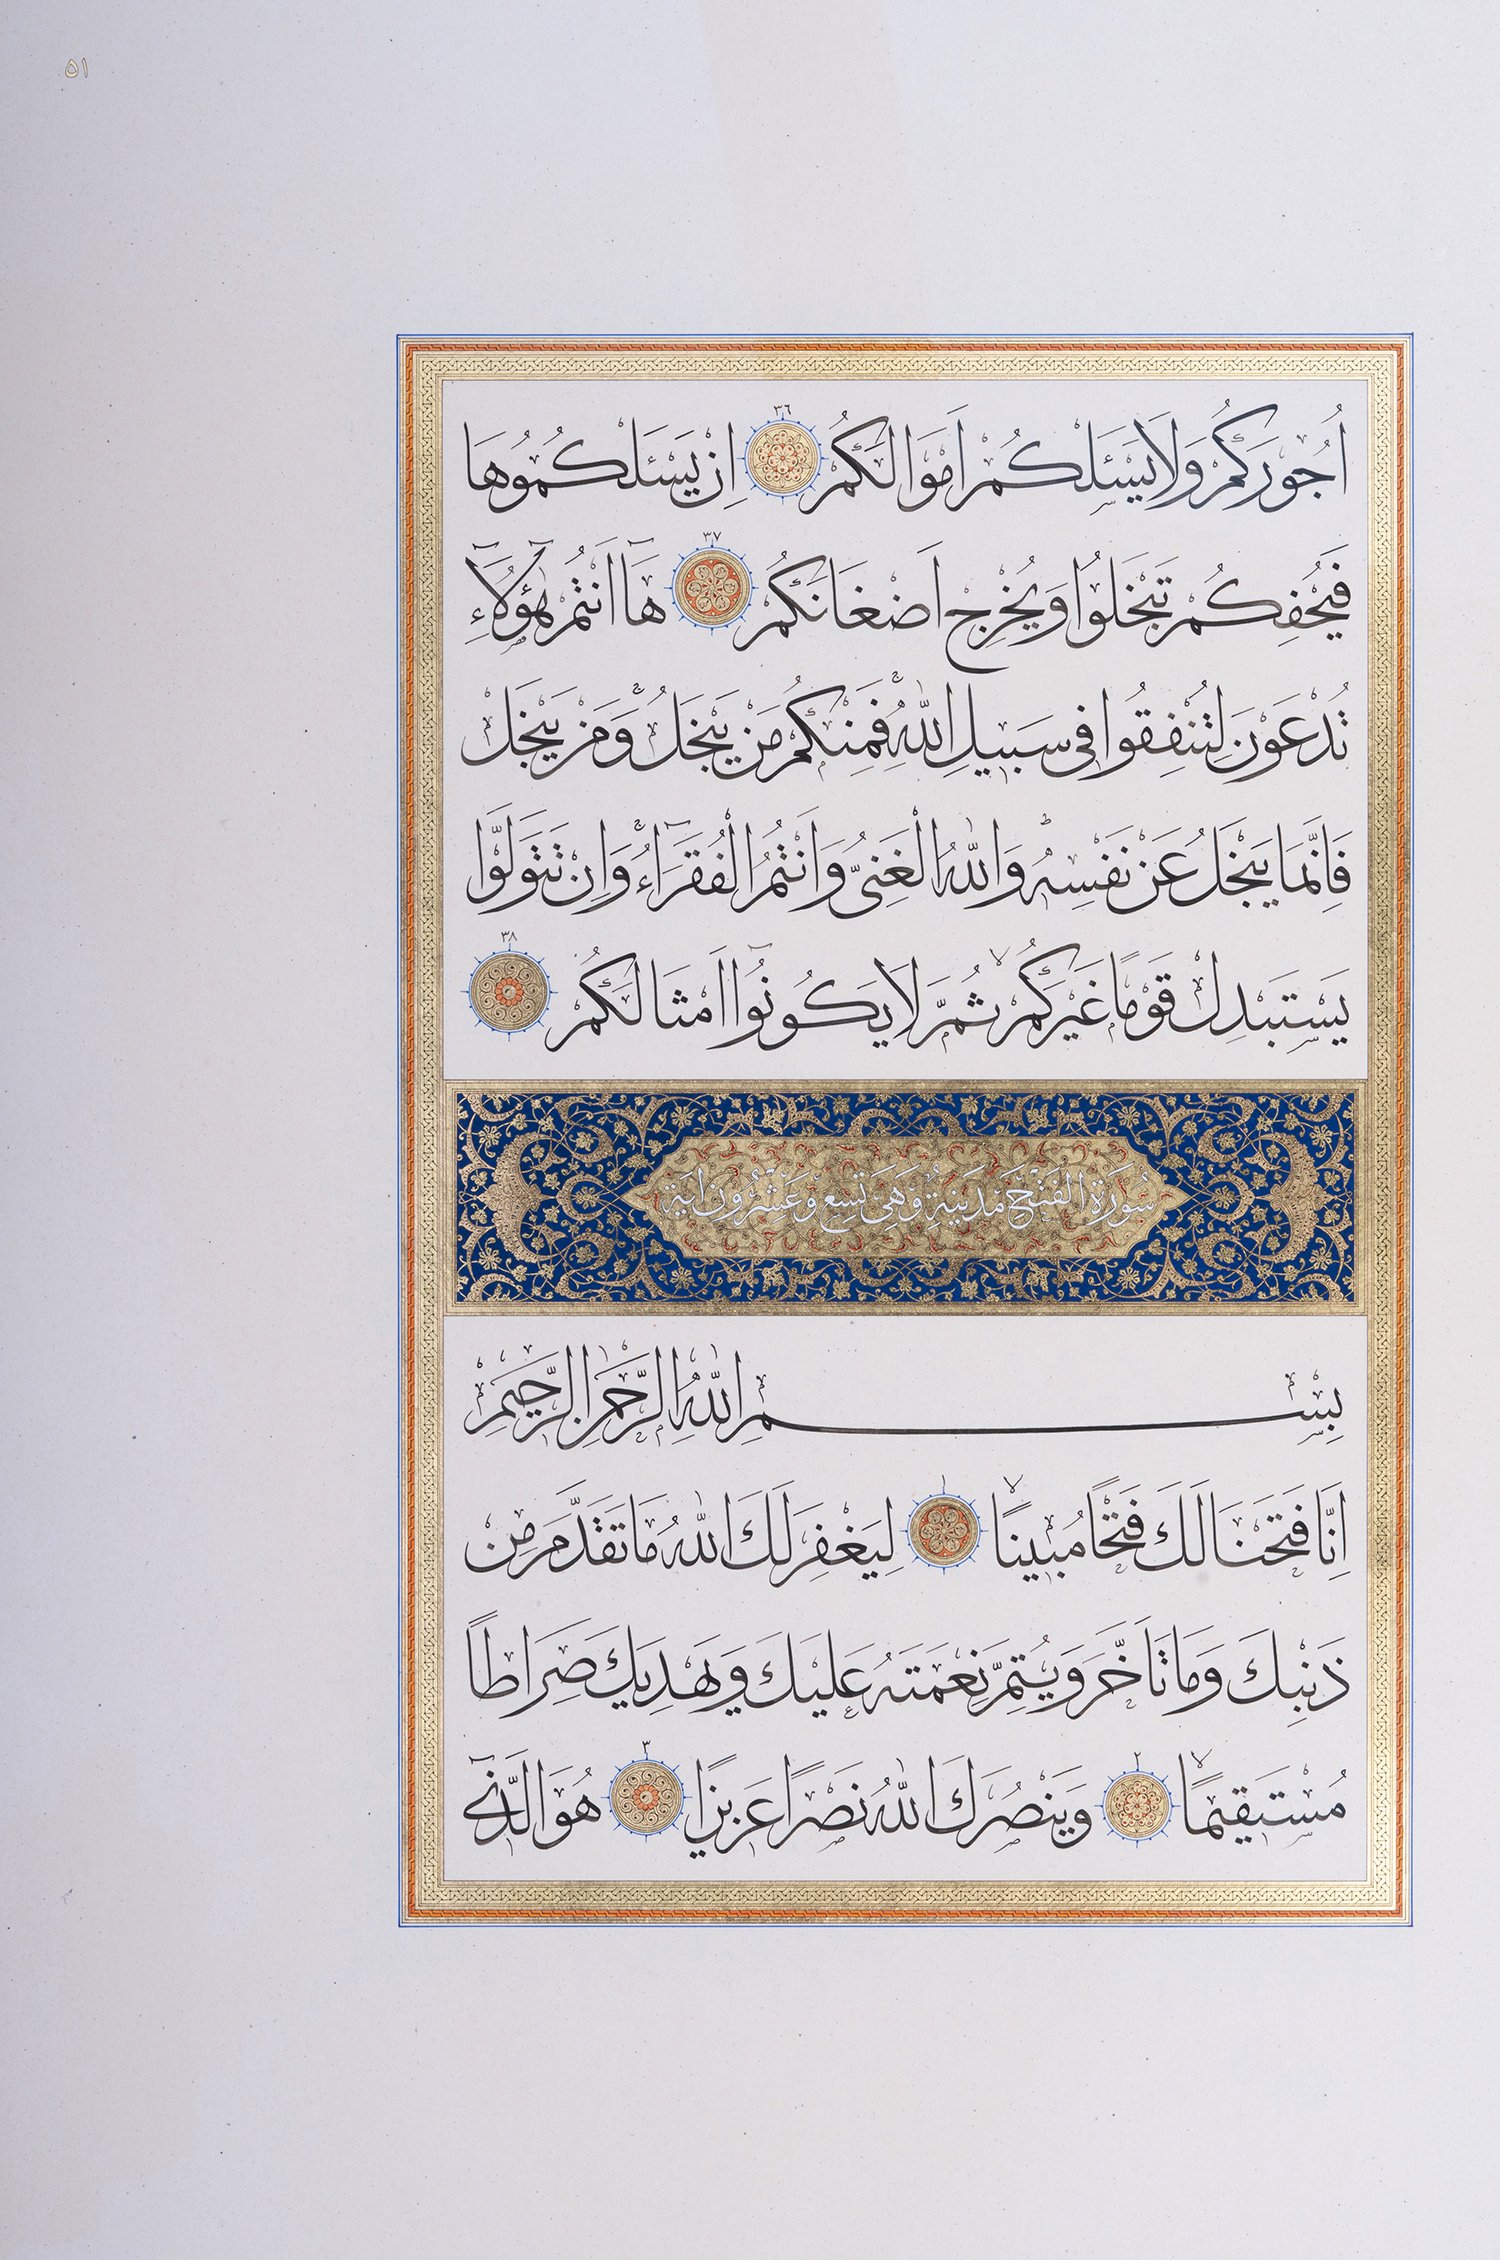 ٥١
اُجُورَكُمْ وَلَا يَسْـَٔلْكُمْ اَمْوَالَكُمْ ٣٦ اِنْ يَسْـَٔلْكُمُوهَا
فَيُحْفِكُمْ تَبْخَلُوا وَيُخْرِجْ اَضْغَانَكُمْ ٣٧ هَٓا اَنْتُمْ هٰٓؤُ۬لَٓاءِ
تُدْعَوْنَ لِتُنْفِقُوا فِى سَبِيلِ اللّٰهِ فَمِنْكُمْ مَنْ يَبْخَلُ وَمَنْ يَبْخَلْ
فَاِنَّمَا يَبْخَلُ عَنْ نَفْسِهٖ وَاللّٰهُ الْغَنِىُّ وَاَنْتُمُ الْفُقَرَٓاءُ وَاِنْ تَتَوَلَّوْا
يَسْتَبْدِلْ قَوْمًا غَيْرَكُمْ ثُمَّ لَا يَكُونُٓوا اَمْثَالَكُمْ ٣٨
سُورَةُ الْفَتْحِ مَدَنِيَّةٌ وَهِىَ تِسْعٌ وَعِشْرُونَ اٰيَةً
بِسْمِ اللّٰهِ الرَّحْمٰنِ الرَّحِيمِ
اِنَّا فَتَحْنَا لَكَ فَتْحًا مُبِينًا ١ لِيَغْفِرَ لَكَ اللّٰهُ مَا تَقَدَّمَ مِنْ
ذَنْبِكَ وَمَا تَاَخَّرَ وَيُتِمَّ نِعْمَتَهُ عَلَيْكَ وَيَهْدِيَكَ صِرَاطًا
مُسْتَقِيمًا ٢ وَيَنْصُرَكَ اللّٰهُ نَصْرًا عَزِيزًا ٣ هُوَ الَّذِٓى